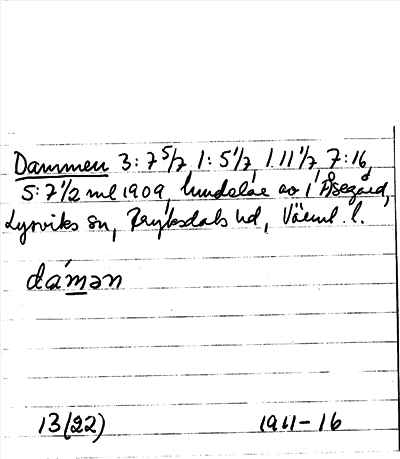 Dammen 3:7 5/7 1:5 1/7, 1.11 1/7, 7:16,
5:7 1/2 ml 1909, hmdelar av 1 Åsegård,
Lysviks sn, Fryksdals hd, Värml. l.
dámən
13(22) 1911-16